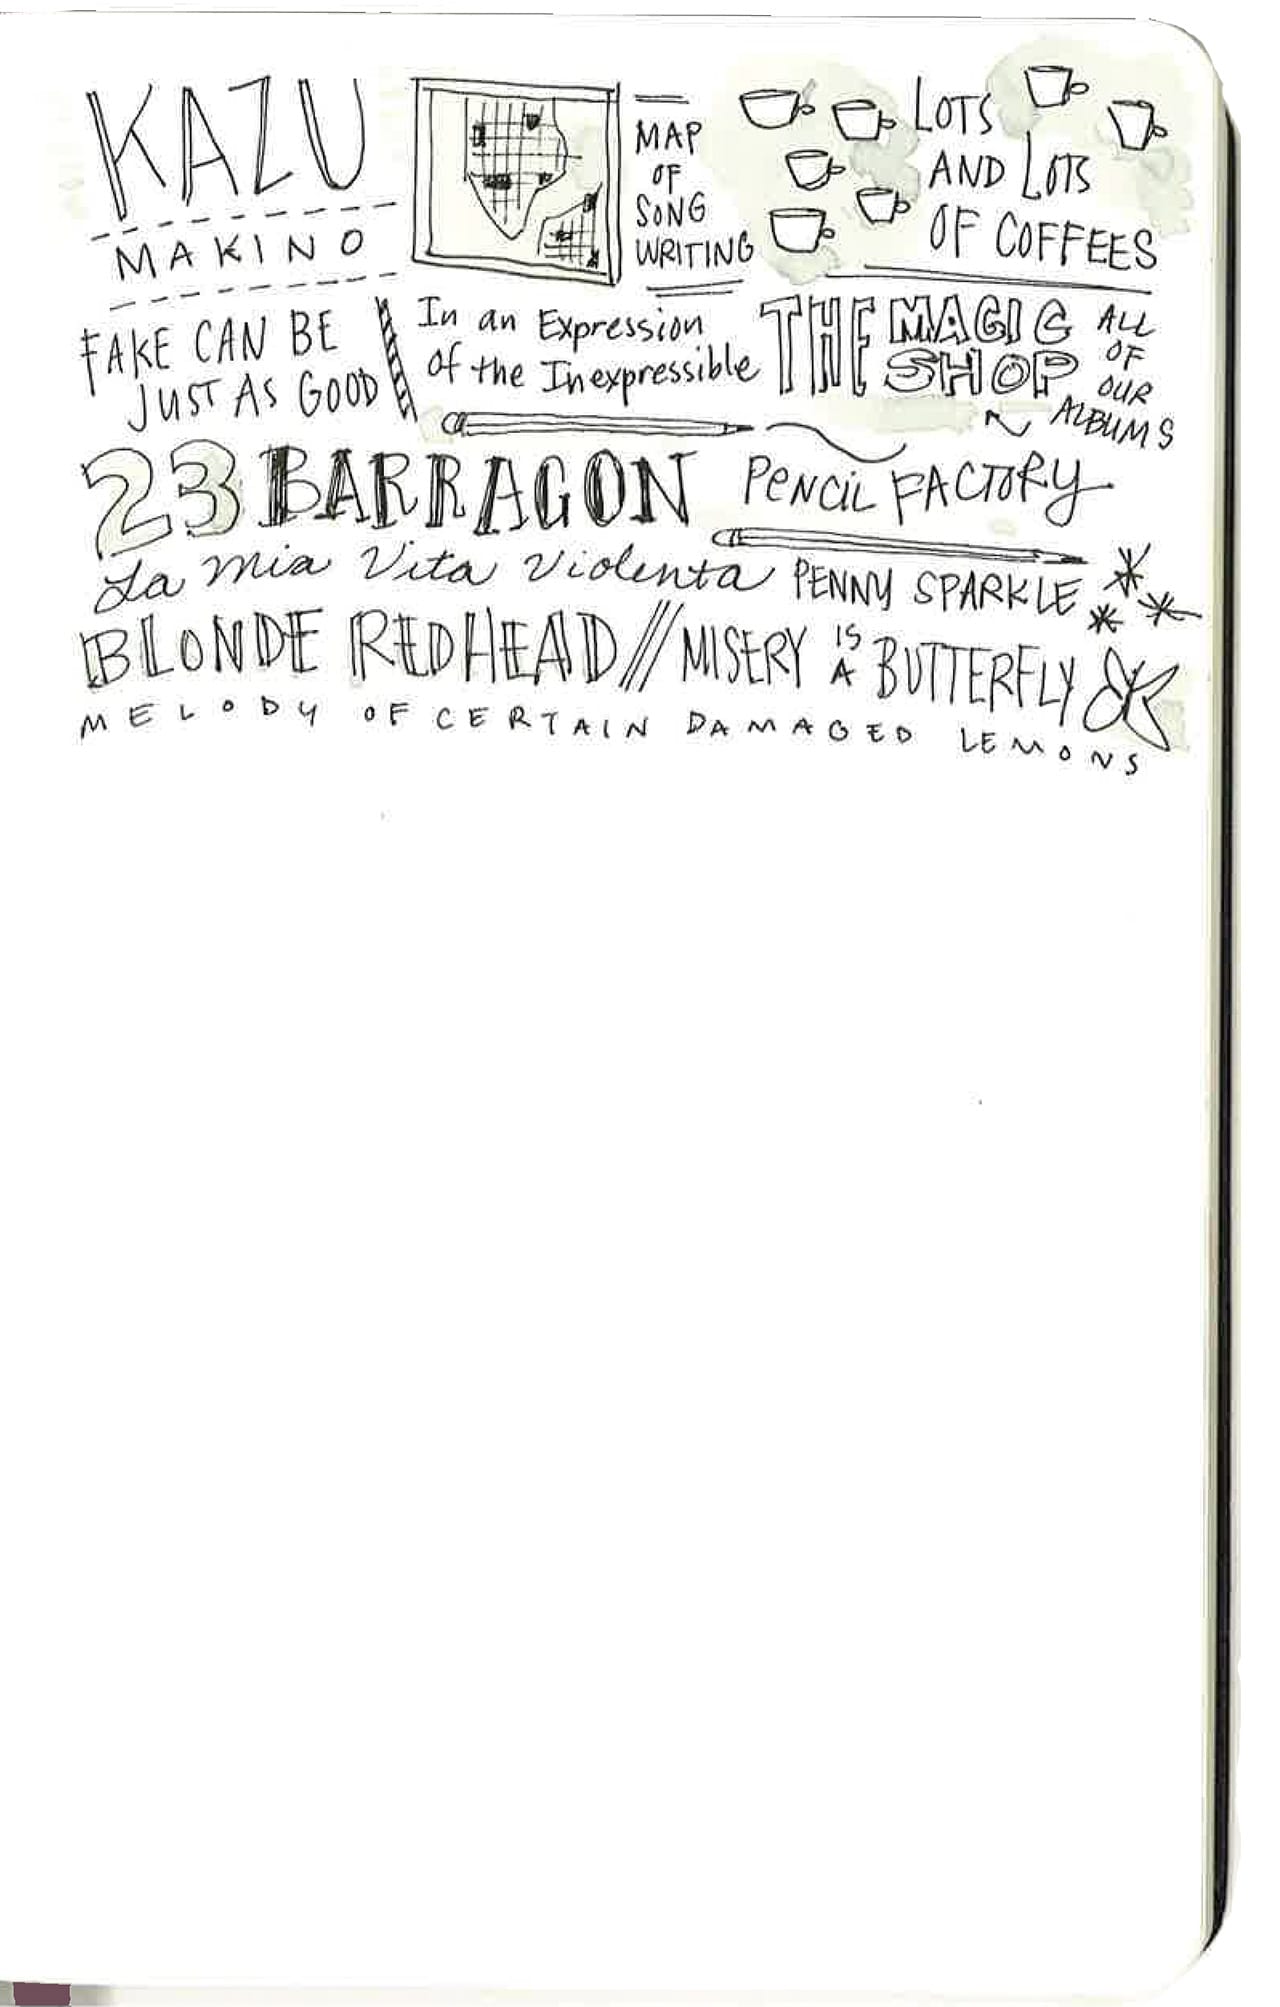 KAZU
MAKINO
MAP
OF
SONG
WRITING
LOTS
AND LOTS
OF COFFEES
FAKE CAN BE
JUST AS GOOD
In an Expression
of the Inexpressible
THE MAGIC
SHOP
ALL
OF
OUR
ALBUMS
23 BARRAGON
PENCIL FACTORY
La Mia Vita Violenta
PENNY SPARKLE
BLONDE REDHEAD // MISERY IS A BUTTERFLY
MELODY OF CERTAIN DAMAGED LEMONS